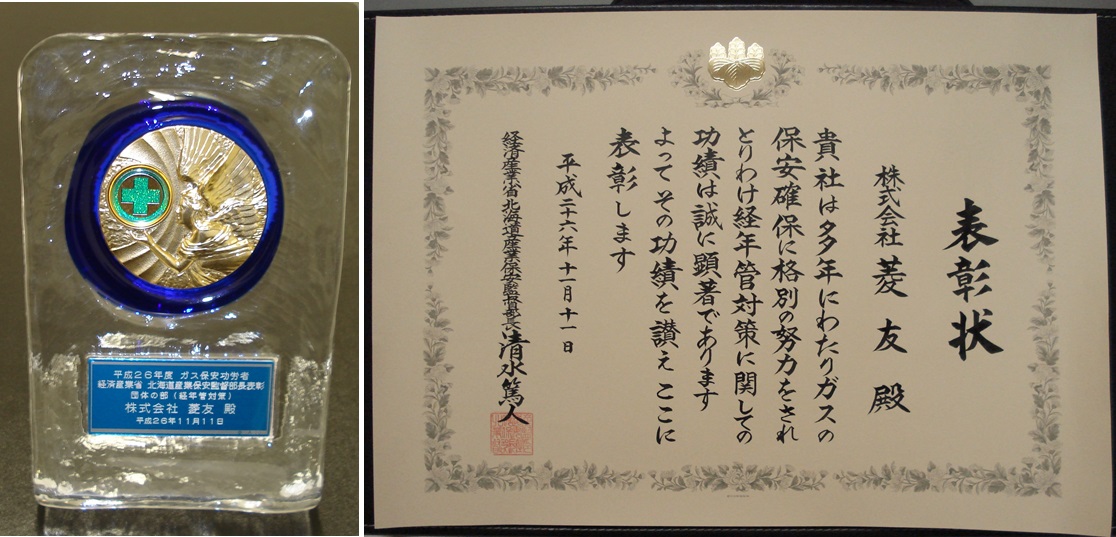 平成26年度 ガス保安功労者
経済産業省 北海道産業保安監督部長表彰
団体の部(経年管対策)
株式会社 菱友 殿
平成26年11月11日
表彰状
株式会社 菱友 殿
貴社は多年にわたりガスの
保安確保に格別の努力をされ
とりわけ経年管対策に関しての
功績は誠に顕著であります
よってその功績を讃えここに
表彰します
平成二十六年十一月十一日
経済産業省北海道産業保安監督部長 清水篤人